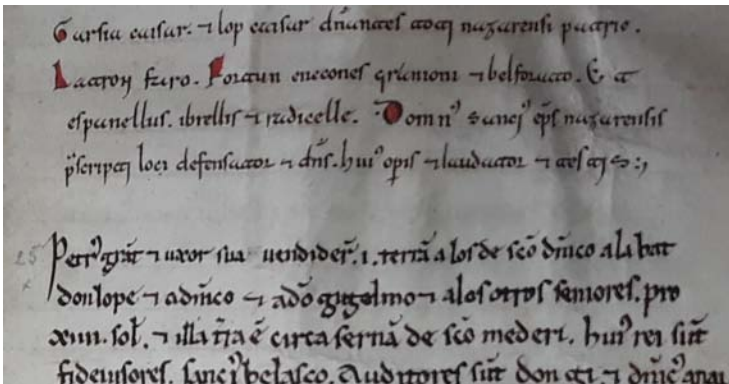 Garsia caisar. ⁊ lop caisar dn̄antes toti nazarensi patrie.
Lacton faro. Fortun enecones grunioni ⁊ belforato. E ta
espanellus. ibrellis ⁊ radicelle. Domnꝰ sancįꝰ ep̄s nazarensis
p̄scripti loci defensator ⁊ dn̄s. huiꝰ opis ⁊ laudator ⁊
25 Petrꝰ ⁊ uxor sua uendider̄. i. terrā a los de sc̄o dm̄ico alabat
don lope ⁊ a dm̄ico ⁊ a dō gigelmo ⁊ a los otros seniores. pro
xiiii. sol. ⁊ illa tr̄a ē circa sernā de sc̄o mederi. huiꝰ rei sūt
fideiussores. sancįꝰ belasco. Auditores sūt don ⁊